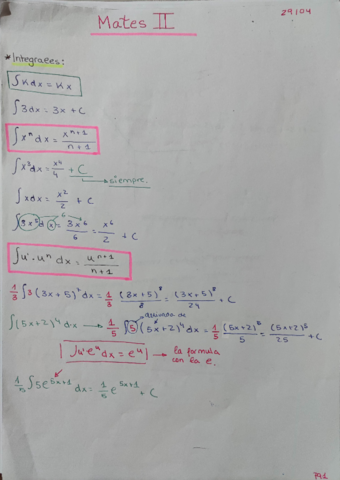 Mates II
29/04
* Integrales:
∫Kdx = Kx
∫3dx = 3x + C
∫xⁿdx = xⁿ⁺¹/n+1
∫x³dx = x⁴/4 + C → siempre.
∫xdx = x²/2 + C
∫3x⁵dx = 3x⁶/6 = x⁶/2 + C
∫u'·uⁿ dx = uⁿ⁺¹/n+1
1/3 ∫3(3x+5)⁷dx = 1/3 (3x+5)⁸/8 = (3x+5)⁸/24 + C
derivada de
∫(5x+2)⁴dx → 1/5 ∫5(5x+2)⁴dx = 1/5 (5x+2)⁵/5 = (5x+2)⁵/25 + C
∫u'eᵘdx = eᵘ → la formula
con la e.
1/5 ∫5e⁵ˣ⁺¹dx = 1/5 e⁵ˣ⁺¹ + C